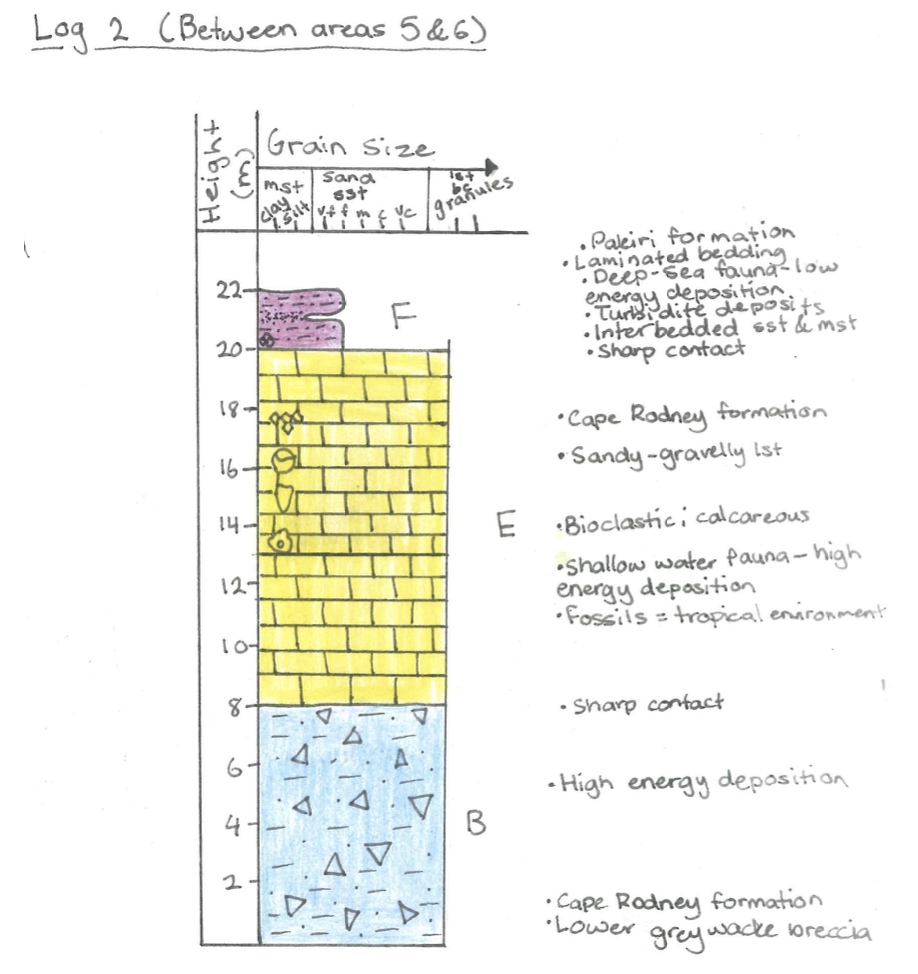 Log 2 (Between areas 5 & 6)
Height (m)
Grain Size
mst
clay silt
sand
sst
vf f m c vc
lst
bc
granules
22
20
18
16
14
12
10
8
6
4
2
F
E
B
• Pakiri formation
• Laminated bedding
• Deep-sea fauna - low
energy deposition
• Turbidite deposits
• Interbedded sst & mst
• Sharp contact
• Cape Rodney formation
• Sandy-gravelly lst
• Bioclastic; calcareous
• Shallow water fauna - high
energy deposition
• Fossils = tropical environment
• Sharp contact
• High energy deposition
• Cape Rodney formation
• Lower greywacke breccia